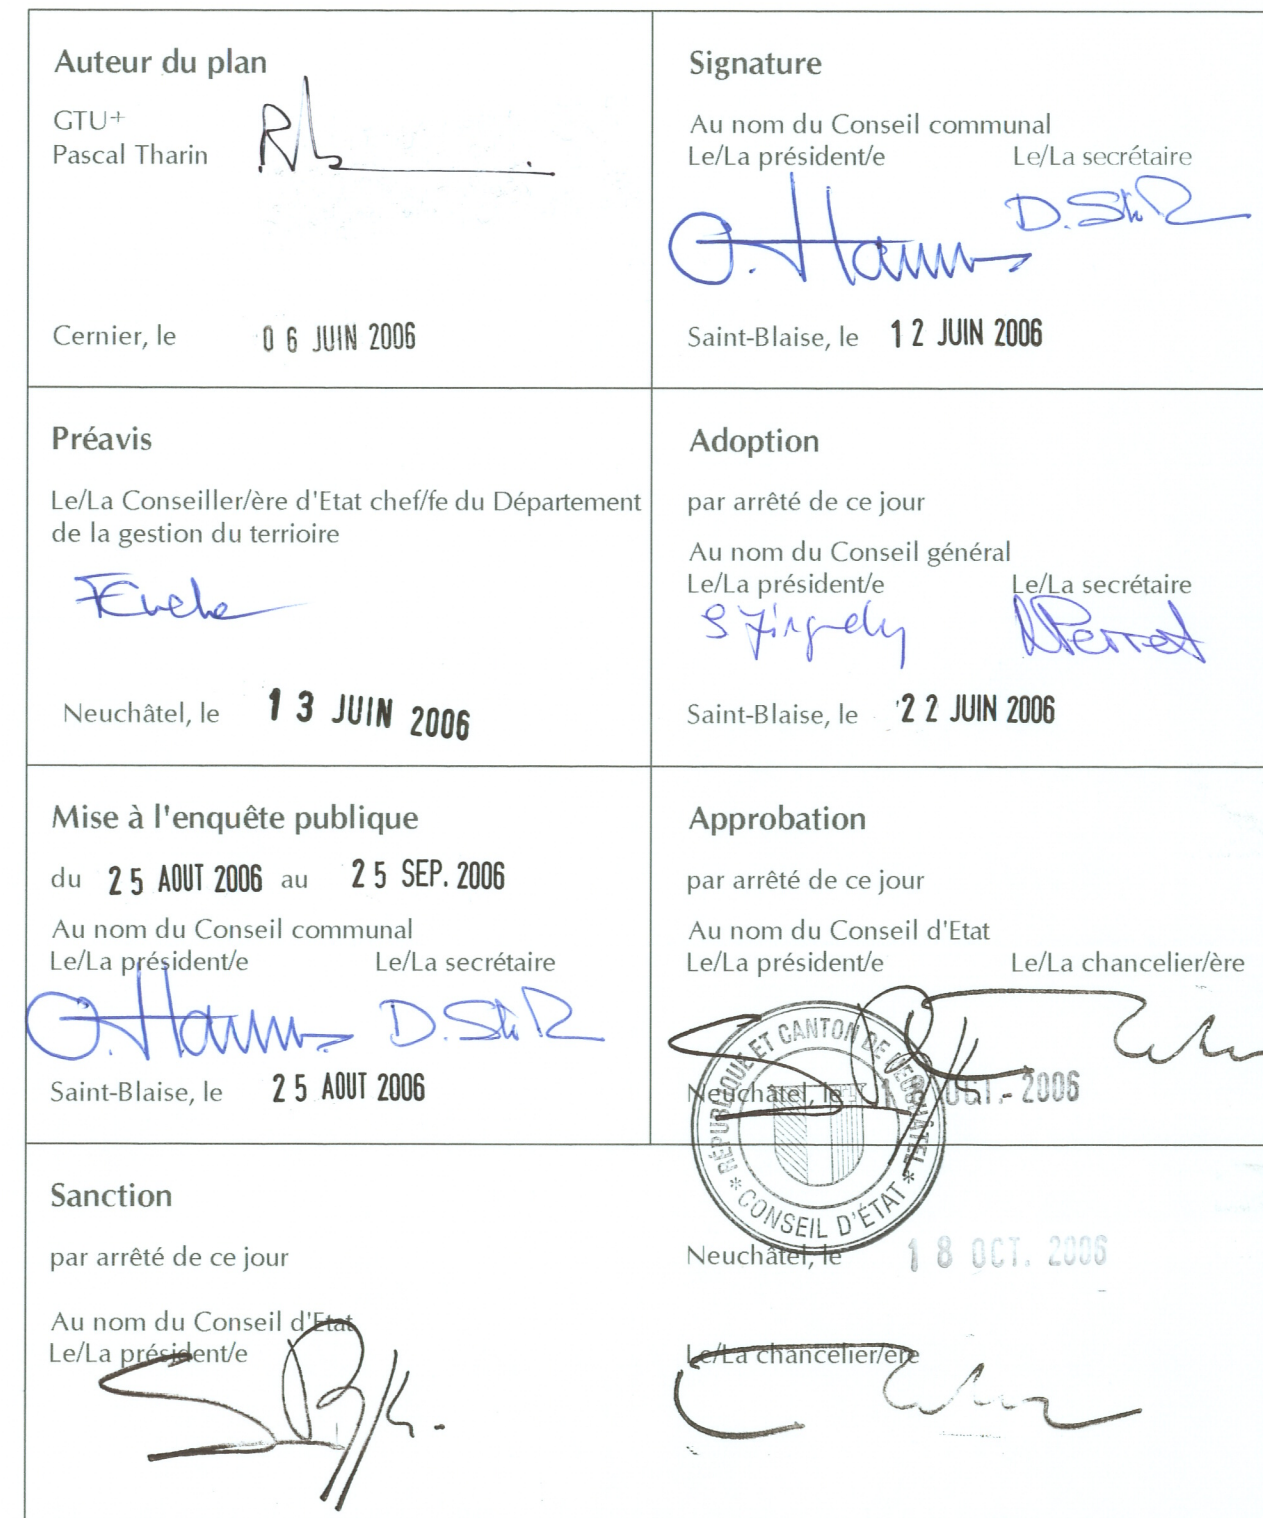 Auteur du plan
GTU+
Pascal Tharin
Cernier, le 06 JUIN 2006
Signature
Au nom du Conseil communal
Le/La président/e Le/La secrétaire
Saint-Blaise, le 12 JUIN 2006
Préavis
Le/La Conseiller/ère d'Etat chef/fe du Département
de la gestion du terrioire
Neuchâtel, le 13 JUIN 2006
Adoption
par arrêté de ce jour
Au nom du Conseil général
Le/La président/e Le/La secrétaire
Perret
Saint-Blaise, le 22 JUIN 2006
Mise à l'enquête publique
du 25 AOUT 2006 au 25 SEP. 2006
Au nom du Conseil communal
Le/La président/e Le/La secrétaire
Saint-Blaise, le 25 AOUT 2006
Approbation
par arrêté de ce jour
Au nom du Conseil d'Etat
Le/La président/e Le/La chancelier/ère
Neuchâtel, le OCT. 2006
RÉPUBLIQUE ET CANTON DE NEUCHÂTEL
* CONSEIL D'ÉTAT *
Sanction
par arrêté de ce jour
Neuchâtel, le 18 OCT. 2006
Au nom du Conseil d'Etat
Le/La président/e Le/La chancelier/ère